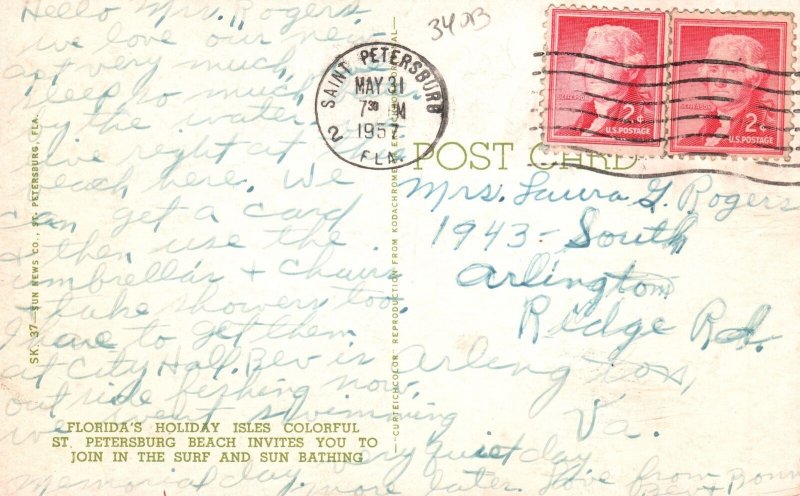 Hello Mrs. Rogers
we love our new
apt very much.
sleep so much
by the water
live right at the
beach here. We
can get a card
& then use the
umbrellas & chairs
& take showers too.
I have to get them
at City Hall. Bev is
outside fishing now,
we went swimming
Memorial day. Very quiet day
more later. Love from Bonn
FLORIDA'S HOLIDAY ISLES COLORFUL
ST. PETERSBURG BEACH INVITES YOU TO
JOIN IN THE SURF AND SUN BATHING
SK. 37—SUN NEWS CO., ST. PETERSBURG, FLA.
—CURTEICHCOLOR REPRODUCTION FROM KODACHROME
340B
SAINT PETERSBURG
MAY 31
7 30 M
1957
2 FLA.
JEFFERSON
2¢
U.S. POSTAGE
JEFFERSON
2¢
U.S. POSTAGE
POST CARD
Mrs. Laura G. Rogers
1943 - South
Arlington
Ridge Rd.
Arlington,
Va.